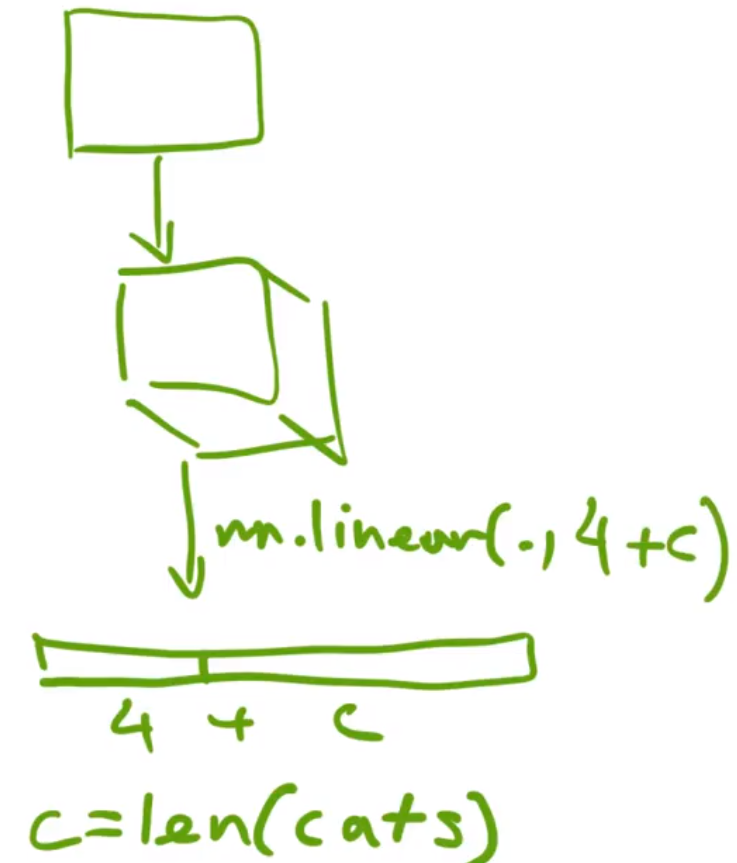 nn.linear(., 4+c)
4 + c
c=len(cats)